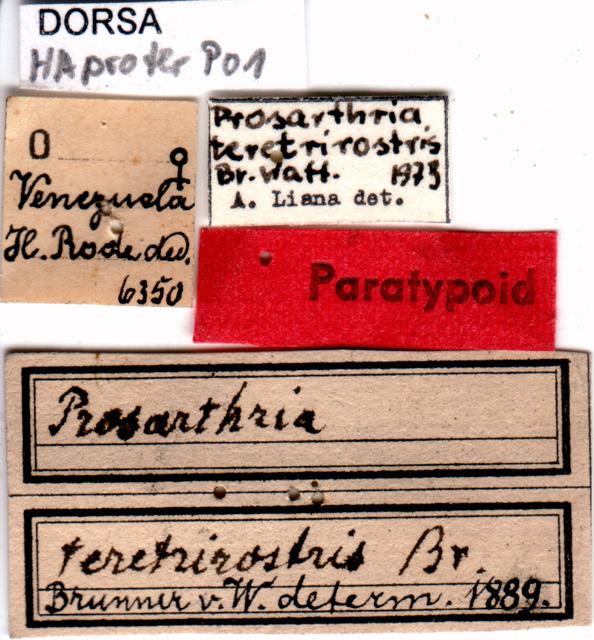 DORSA
HAproter P01
O ♀
Venezuela
H. Rode ded.
6350
Prosarthria
teretrirostris
Br. Watt. 1973
A. Liana det.
Paratypoid
Prosarthria
teretrirostris Br.
Brunner v. W. determ. 1889.